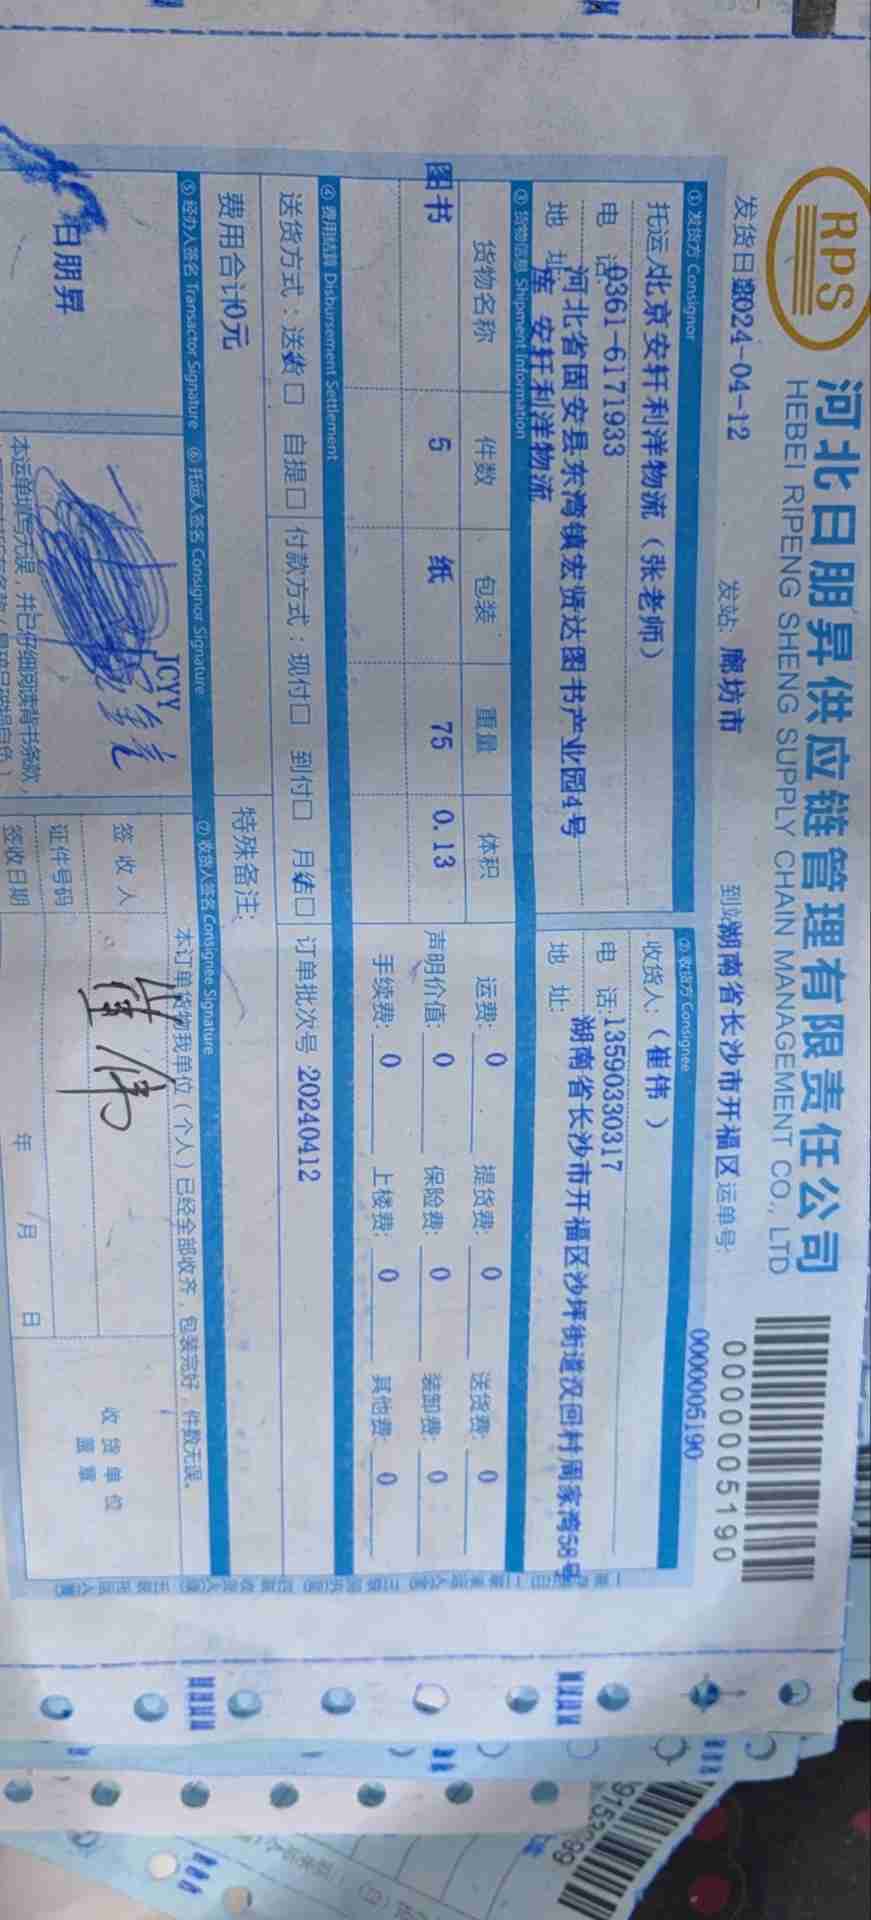 RPS
河北日朋昇供应链管理有限责任公司
HEBEI RIPENG SHENG SUPPLY CHAIN MANAGEMENT CO., LTD
0000005190
发货日期2024-04-12 发站: 廊坊市 到站湖南省长沙市开福区 运单号:
0000005190
① 发货方 Consignor
托运人北京安轩利洋物流（张老师）
电 话:0361-6171933
地 址 河北省固安县东湾镇宏贤达图书产业园4号
库 安轩利洋物流
② 收货方 Consignee
收货人:（崔伟 ）
电 话:13590330317
地 址: 湖南省长沙市开福区沙坪街道汉回村周家湾58号
③ 货物信息 Shipment Information
货物名称 件数 包装 重量 体积
图书 5 纸 75 0.13
运费: 0 提货费: 0 送货费: 0
声明价值: 0 保险费: 0 装卸费: 0
手续费: 0 上楼费: 0 其他费: 0
④ 费用结算 Disbursement Settlement
送货方式：送货 自提 付款方式：现付 到付 月结 订单批次号 20240412
费用合计0元
特殊备注:
⑤ 经办人签名 Transactor Signature
日朋昇
⑥ 托运人签名 Consignor Signature
JCYY
本运单填写无误，并已仔细阅读背书条款，
⑦ 收货人签名 Consignee Signature
本订单货物我单位（个人）已经全部收齐，包装完好，件数无误。
签收人 崔伟
证件号码
签收日期 年 月 日
收货单位
盖章